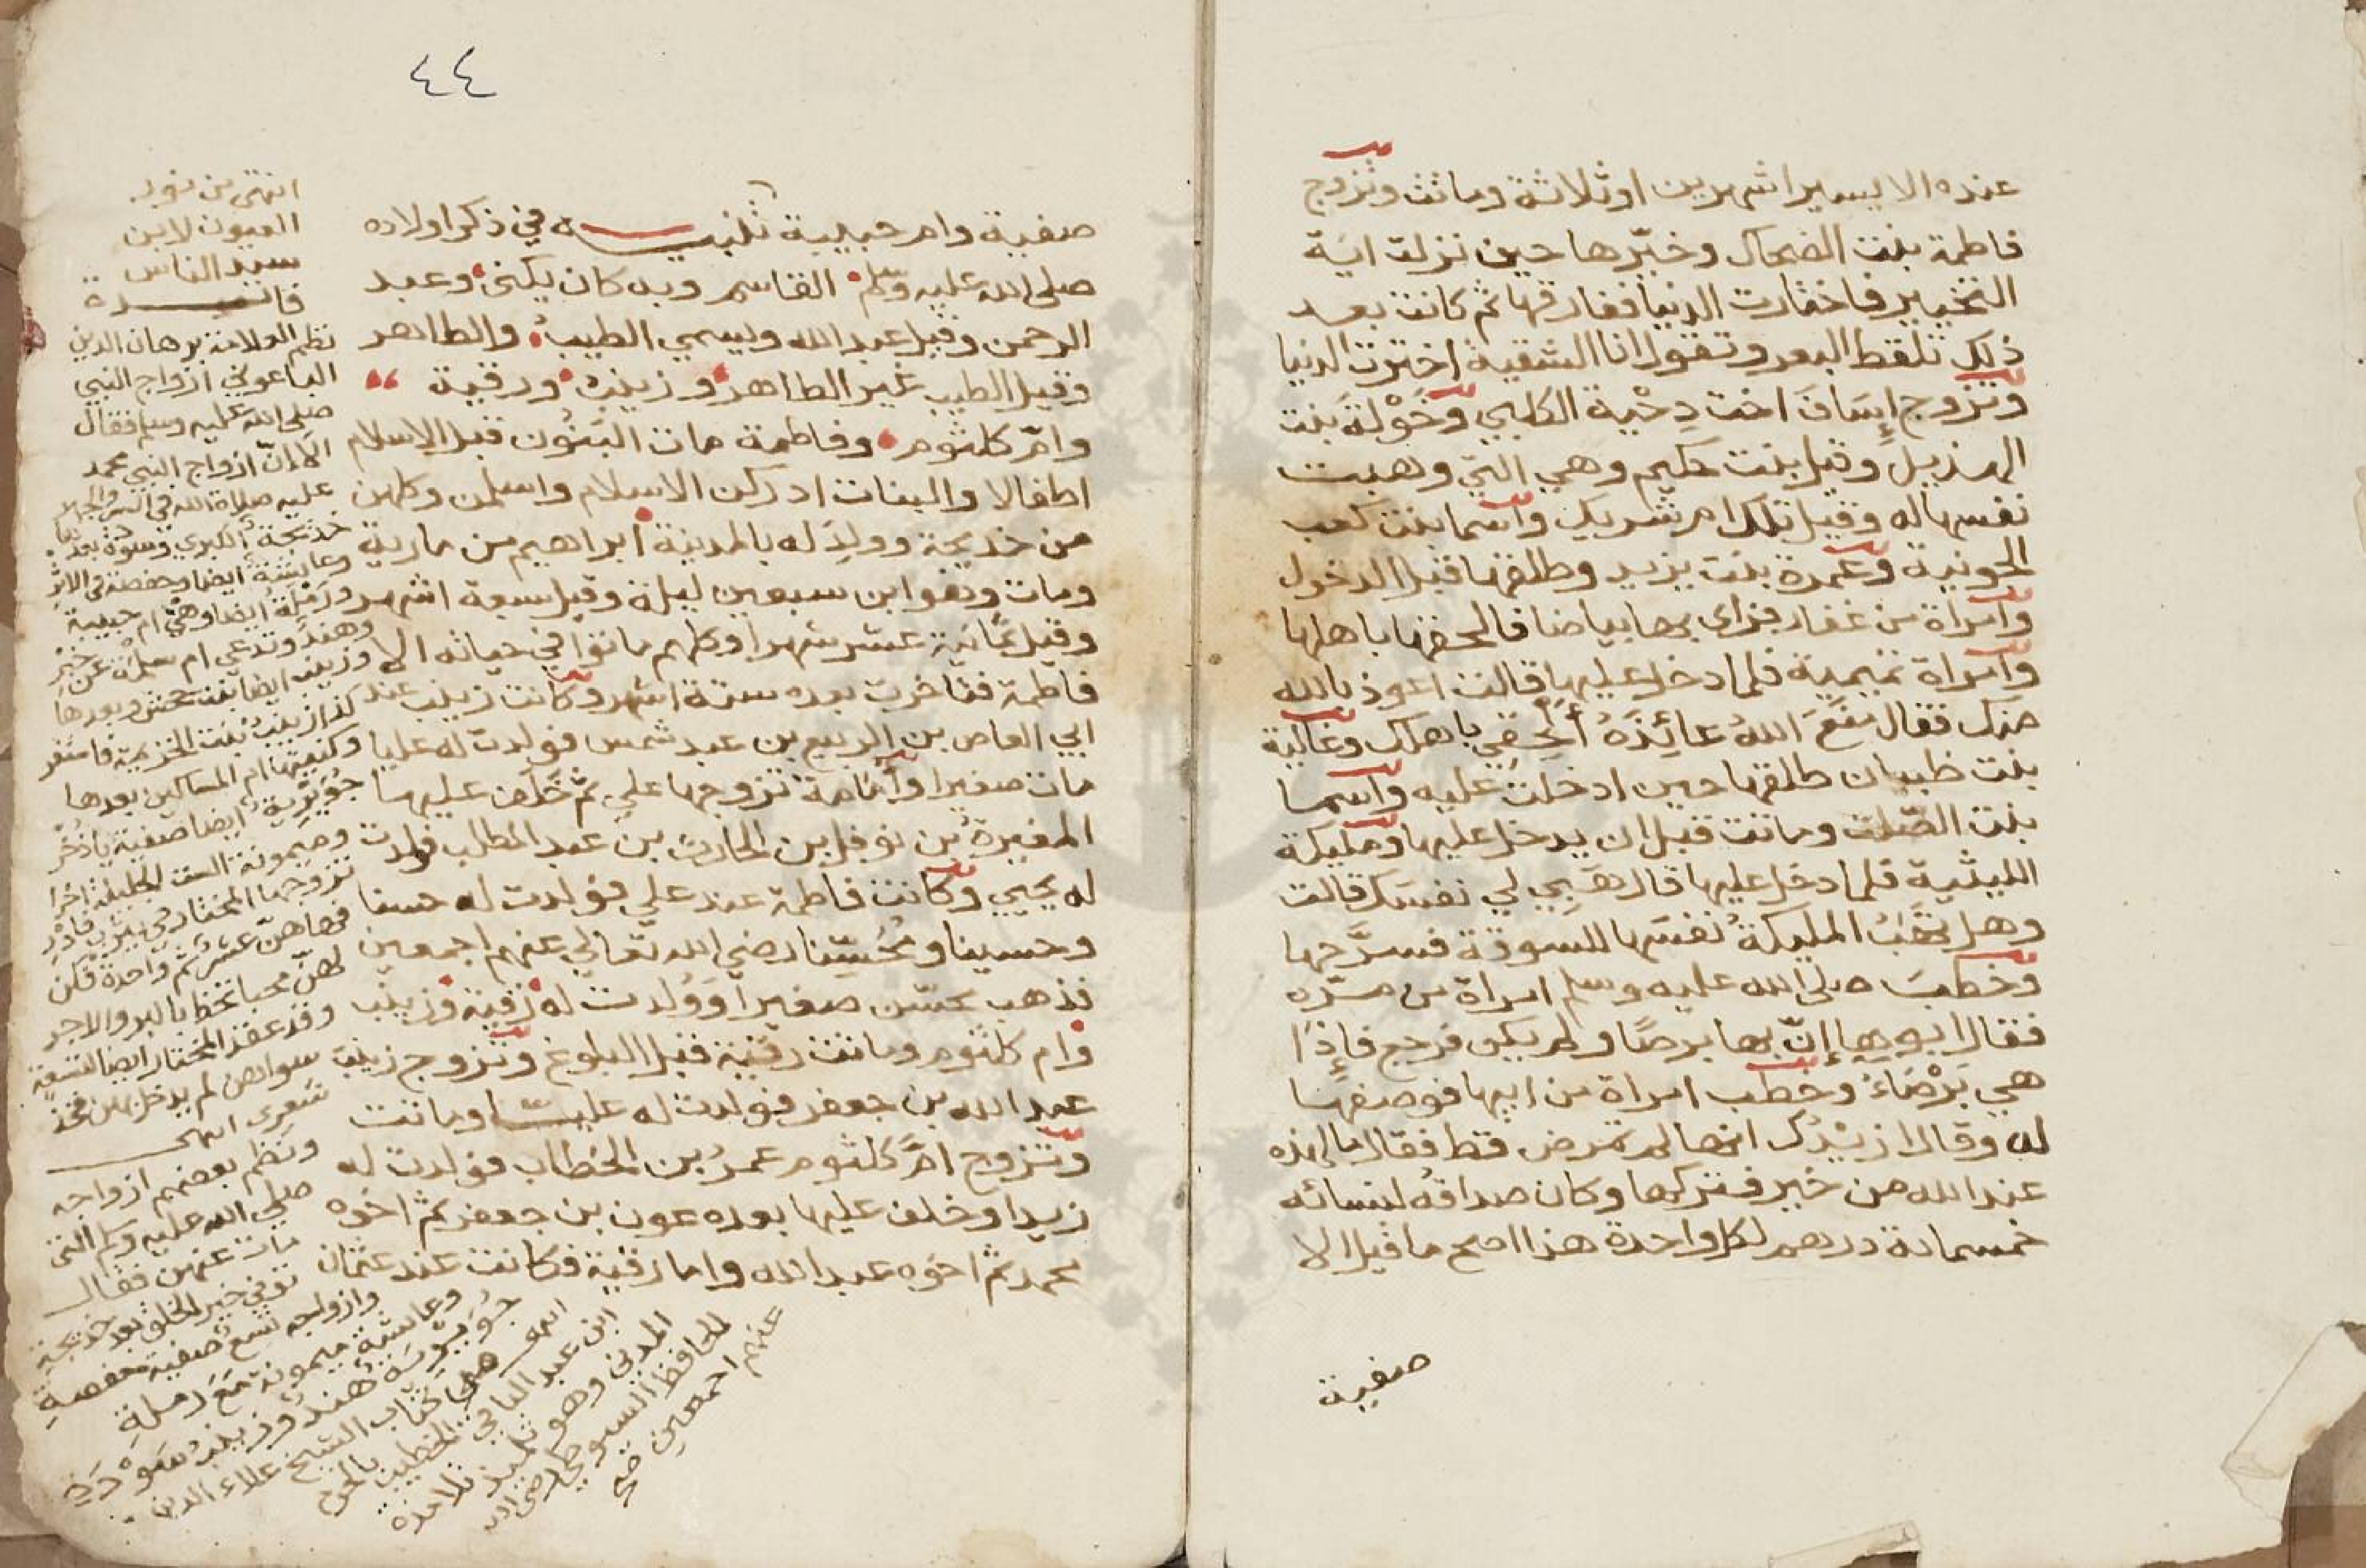 عنده الا يسيرا شهرين او ثلاثة وماتت وتزوج
فاطمة بنت الضحاك وخيّرها حين نزلت اية
التخيير فاختارت الدنيا ففارقها ثم كانت بعد
ذلك تلقط البعر وتقول انا الشقية اخترت الدنيا
وتزوج إسَافَ اخت دِحْية الكلبي وخَوْلَة بنت
الهذيل وقيل بنت حكيم وهي التي وهبت
نفسها له وقيل تلك ام شريك واسما بنت كعب
الجونية وعمرة بنت يزيد وطلقها قبل الدخول
وامراة من غفار فراى بها بياضا فالحقها باهلها
وامراة تميمية فلما دخل عليها قالت اعوذ بالله
منك فقال منَعَ اللهُ عائِذَهُ أَلحِقي باهلك وغالية
بنت ظبيان طلقها حين ادخلت عليه واسما
بنت الصّلت وماتت قبل ان يدخل عليها ومليكة
الليثية فلما دخل عليها قال هَبِي لي نفسك قالت
وهل تهَبُ المليكةُ نفسَها للسوقة فسرَّحها
وخطبَ صلى الله عليه وسلم امراة من مرّه
فقال ابوها إنّ بها برصًا ولم يكن فرجع فإذا
هي بَرْصَاءُ وخطب امراة من ابيها فوصفها
له وقال ازيدُك انها لم تمرض قط فقال ما لهذه
عند الله من خير فتركها وكان صداقُه لنسائه
خمسمائة درهم لكل واحدة هذا اصح ما قيل الا
صفية
٤٤
صفية وام حبيبة تنبيه في ذكر اولاده
صلى الله عليه وسلم القاسم وبه كان يكنى وعبد
الرحمن وقيل عبد الله ويسمي الطيب والطاهر
وقيل الطيب غير الطاهر وزينب ورقية
وامّ كلثوم وفاطمة مات البَنُون قبل الاسلام
اطفالا والبنات ادركن الاسلام واسلمن وكلهن
من خديجة وولِدَ له بالمدينة ابراهيم من مارية
ومات وهو ابن سبعين ليلة وقيل سبعة اشهر
وقيل ثمانية عشر شهرا وكلهم ماتوا في حياته الا
فاطمة فتاخرت بعده ستة اشهر وكانت زينب عند
ابي العاص بن الربيع بن عبد شمس فولدت له عليا
مات صغيرا وأمَامة تزوجها علي ثم خَلَف عليها
المغيرة بن نوفل بن الحارث بن عبد المطلب فولدت
له يحيي وكانت فاطمة عند علي فولدت له حسنا
وحسينا ومُحَسِّنا رضي الله تعالي عنهم اجمعين
فذهب محسّن صغيرا وَوُلدت له رُقية وزينب
وام كلثوم وماتت رقية قبل البلوغ وتزوج زينب
عبد الله بن جعفر فولدت له عليا وماتت
وتزوج امَّ كلثوم عمرُ بن الخطاب فولدت له
زيدا وخلف عليها بعده عون بن جعفر ثم اخوه
محمد ثم اخوه عبد الله واما رقية فكانت عند عثمان
انتهى من نور
العيون لابن
سيد الناس
فائدة
نظم العلامة برهان الدين
الباعوني ازواج النبي
صلى الله عليه وسلم فقال
الا انّ ازواج النبي محمد
عليه صلاة الله في السر والجهر
خديجة الكبري وسودة بعدها
وعائشة ايضا وحفصة في الاثر
ورَمْلة ايضا وهي ام حبيبة
وهند وتدعي ام سلمة عن خبر
وزينب ايضا بنت جحش وبعدها
كذا زينب بنت الخزيمة فاستقر
وكنيتها ام المساكين بعدها
جُوَيْرية ايضا صفية يا ذخر
وميمونة الست الجليلة اخرا
تزوجها المختار في يثرب فادر
فهاهنّ عشر ثم واحدة فكن
لهن محبا تحظ بالبر والاجر
وقد عقد المختار ايضا لتسعة
سواهن لم يدخل بهن فخذ
شعرى انتهى
ونظم بعضهم ازواجه
صلى الله عليه وسلم التى
مات عنهن فقال
توفي خير الخلق بعد خديجة
وازواجه تسع صفية حفصةِ
وعائشة ميمونة مَعَ رملةِ
جُوَيْريَة هند وزينب سودةِ
انتهى هي كتاب الشيخ علاء الدين
ابن عبد الباقي الخطيب بالحرم
المدني وهو تلميذ تلامذة
للحافظ السيوطي رضي الله
عنهم اجمعين